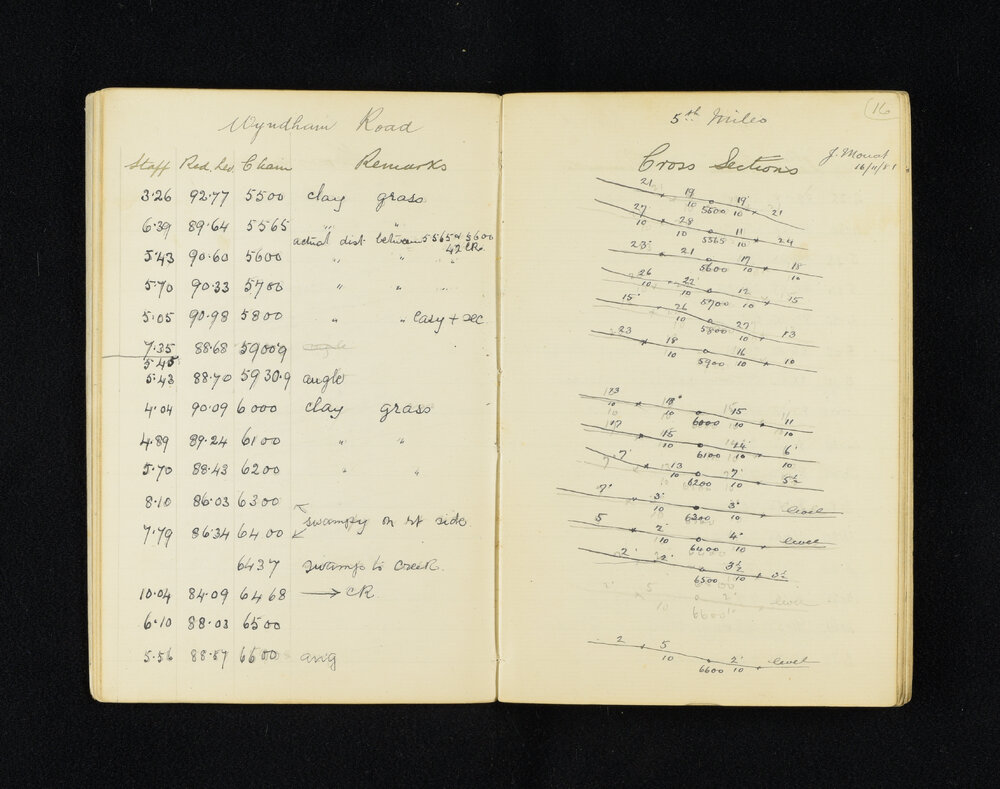 Wyndham Road
Staff Red. Lev. Chain Remarks
3·26 92·77 5500 clay grass
6·39 89·64 5565 " "
actual dist. between 5565 & 5600
42 CR.
5·43 90·60 5600 " " "
5·70 90·33 5700 " "
5·05 90·98 5800 " " easy + sec
7·35 88·68 5900·9
5·45
5·43 88·70 5930·9 angle
4·04 90·09 6000 clay grass
4·89 89·24 6100 " "
5·70 88·43 6200 " "
8·10 86·03 6300
swampy on rt side
7·79 86·34 6400
6437 swamp to creek.
10·04 84·09 6468 → CR.
6·10 88·03 6500
5·56 88·57 6600 ang
16
5th Miles
J. Mouat
16/11/81
Cross Sections
21 19 19 21
10 5500 10
27 28 11 24
10 10 5565 10
23 21 17 18
10 5600 10 10
26 22 12 15
10 10 5700 10
15 26 27 13
10 5800
23 18 16 10
10 5900 10
13 18 15 11
10 6000 10 10
17 15 14 6
10 6100 10 10
7 13 7 5½
10 6200 10
7 3 3 level
10 6300 10
5 2 4 level
10 6400 10
2 2 3½ 3½
6500 10
2 5 2 level
10 6600 10
2 5 2 level
10 6600 10